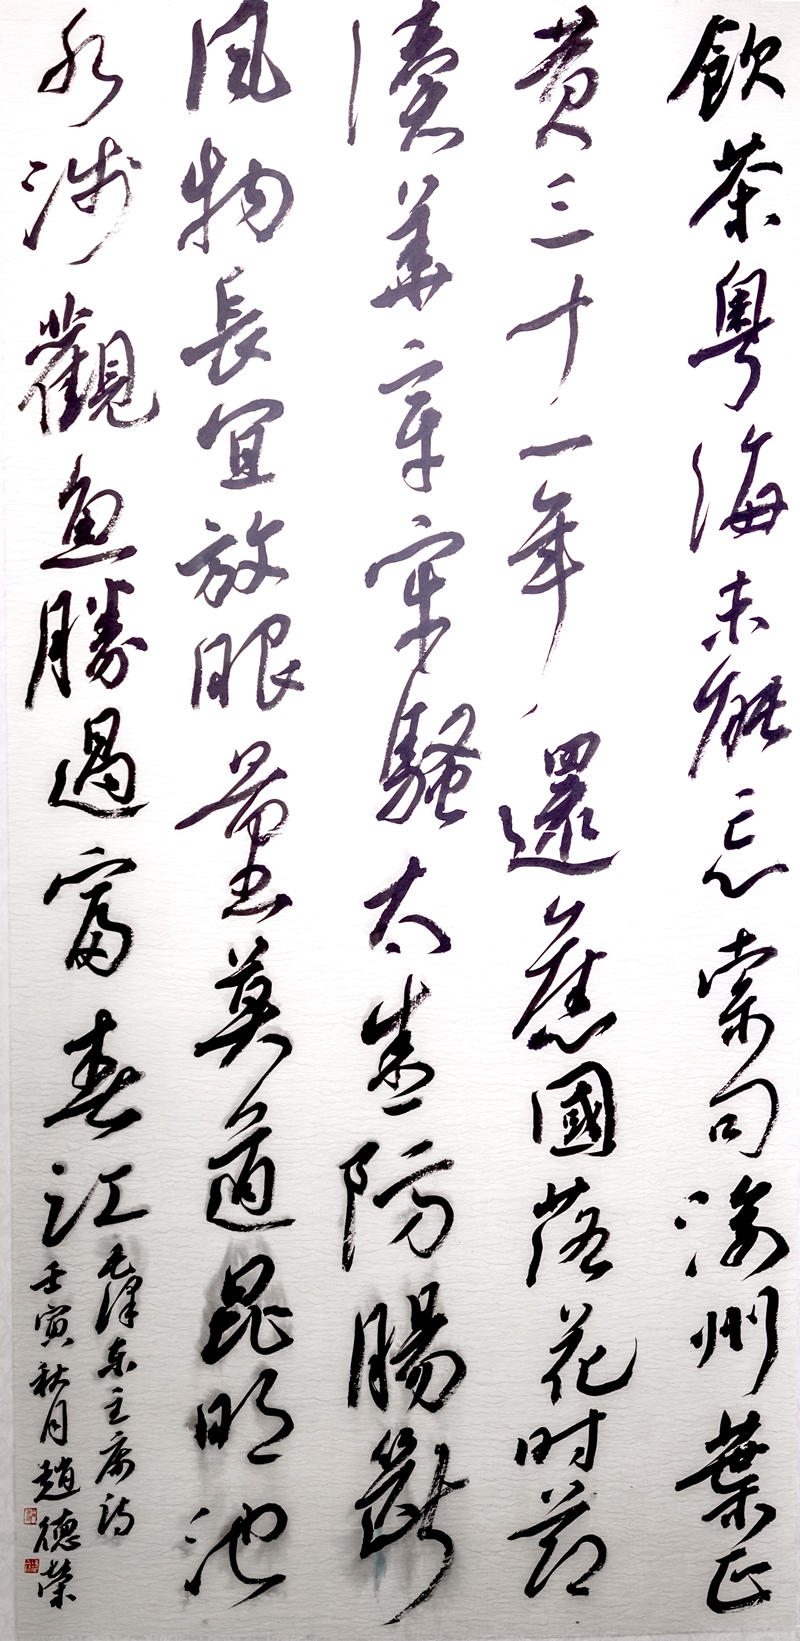 飲茶粵海未能忘索句渝州葉正
黄三十一年還舊國落花时節
讀華章牢騷太盛防腸斷
風物長宜放眼量莫道昆明池
水淺觀魚勝過富春江
毛澤東主席詩
壬寅秋月趙德榮